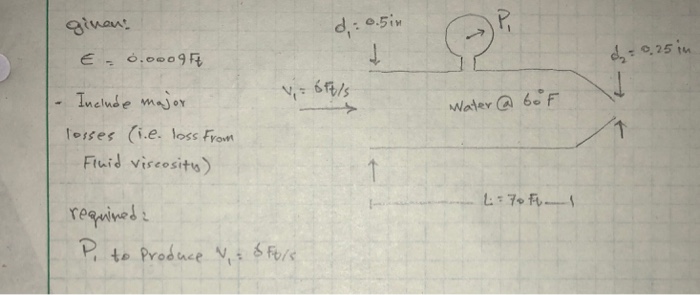 given:
ϵ = 0.0009 ft
- Include major
losses (i.e. loss from
Fluid viscosity)
required:
P₁ to produce V₁ = 6 ft/s
d₁ = 0.5 in
P₁
d₂ = 0.25 in
V₁ = 6 ft/s
Water @ 60°F
L = 70 ft